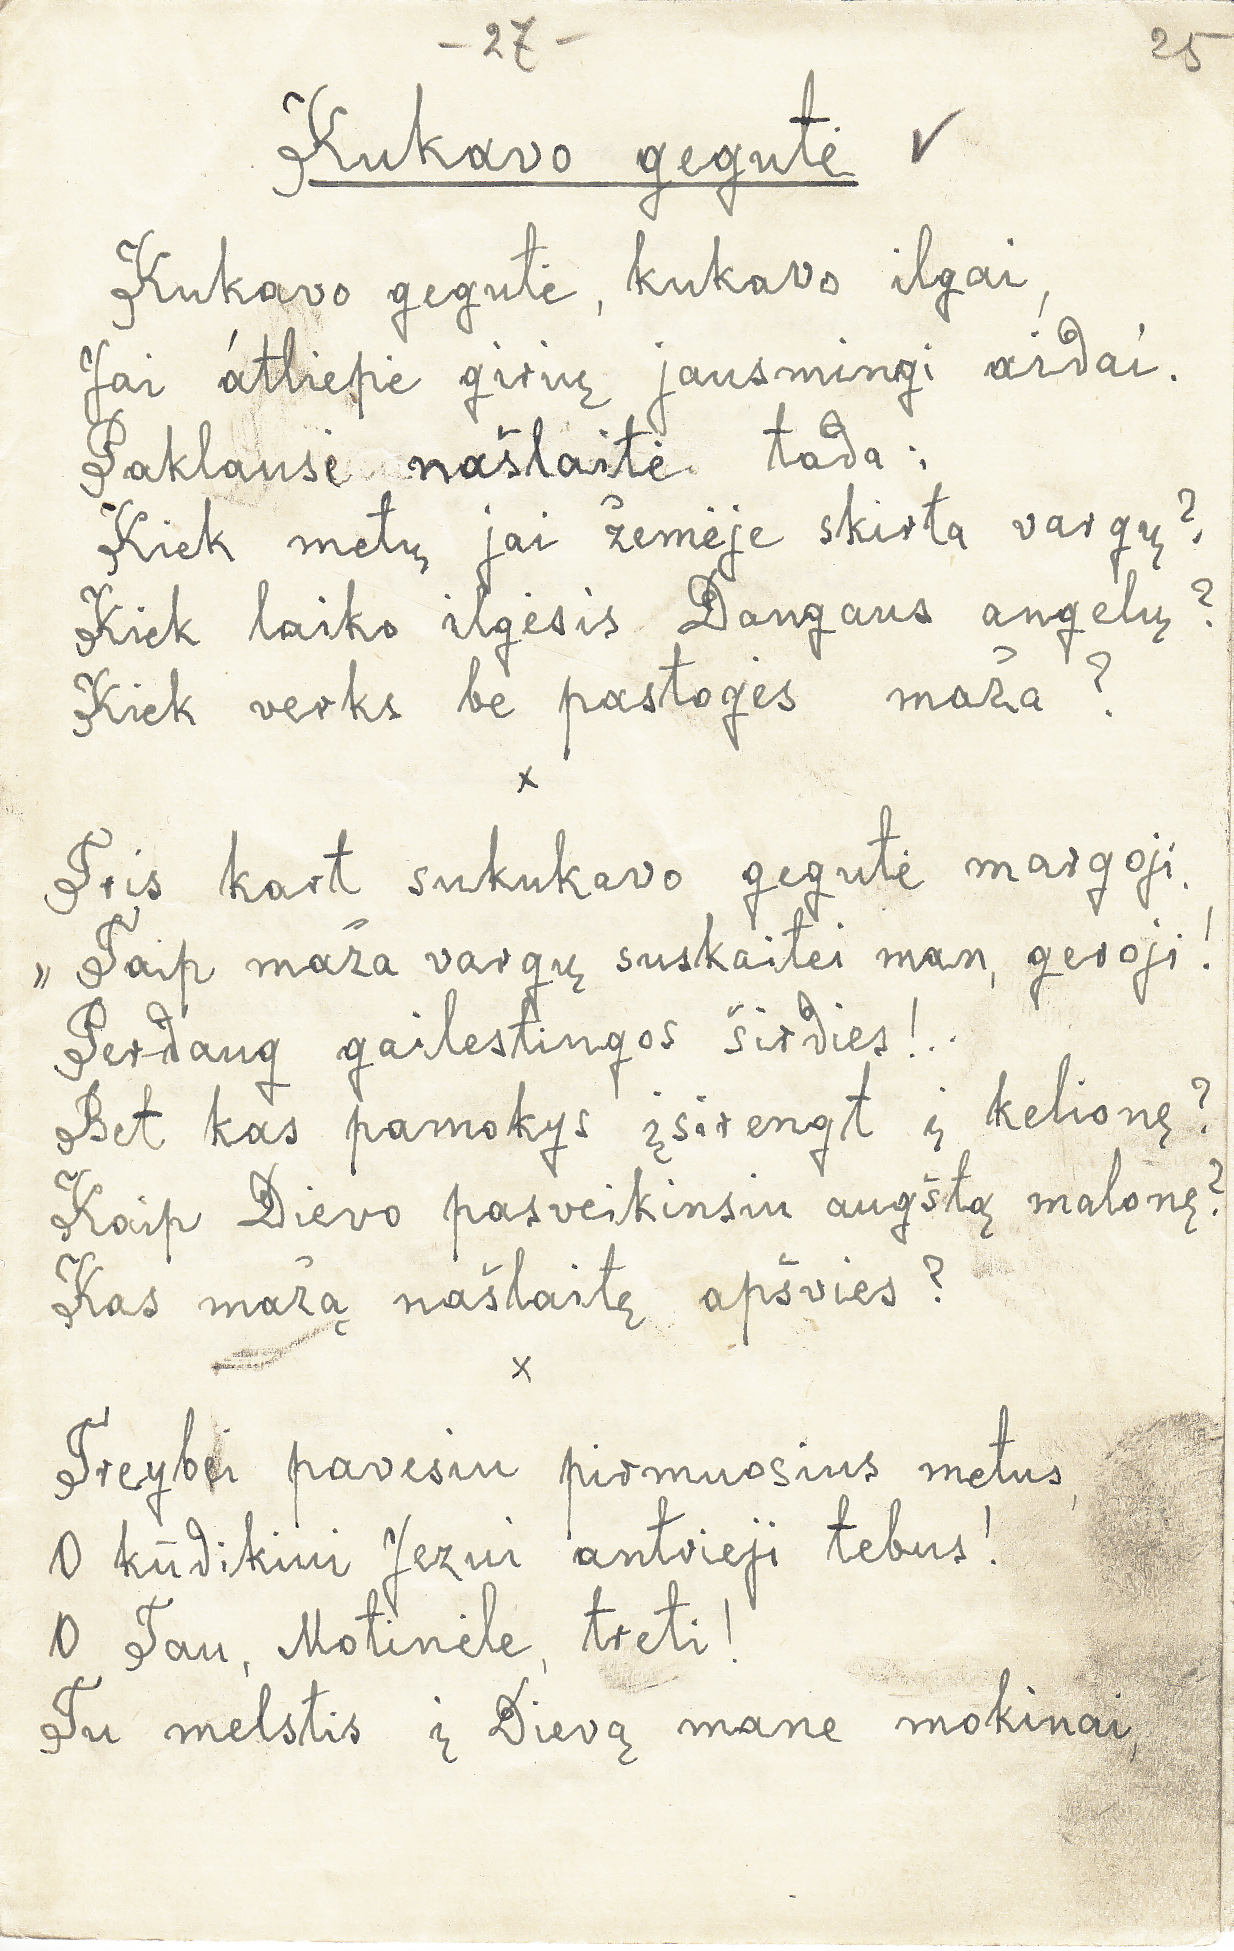 - 27 -
25
Kukavo gegutė ✓
Kukavo gegutė, kukavo ilgai,
Jai átliepė girių jausmingi aidai.
Paklausė našlaitė tada:
Kiek metų jai žemėje skirta vargų?
Kiek laiko ilgėsis Dangaus angelų?
Kiek verks be pastogės maža?
x
Tris kart sukukavo gegutė margoji.
„Taip maža vargų suskaitei man, geroji!
Perdaug gailestingos širdies!..
Bet kas pamokys įsirengt į kelionę?
Kaip Dievo pasveikinsiu augštą malonę?
Kas mažą našlaitę apšvies?
x
Treybei pavesiu pirmuosius metus,
O kūdikiui Jezui antrieji tebus!
O Tau, Motinėle, treti!
Tu melstis į Dievą mane mokinai,